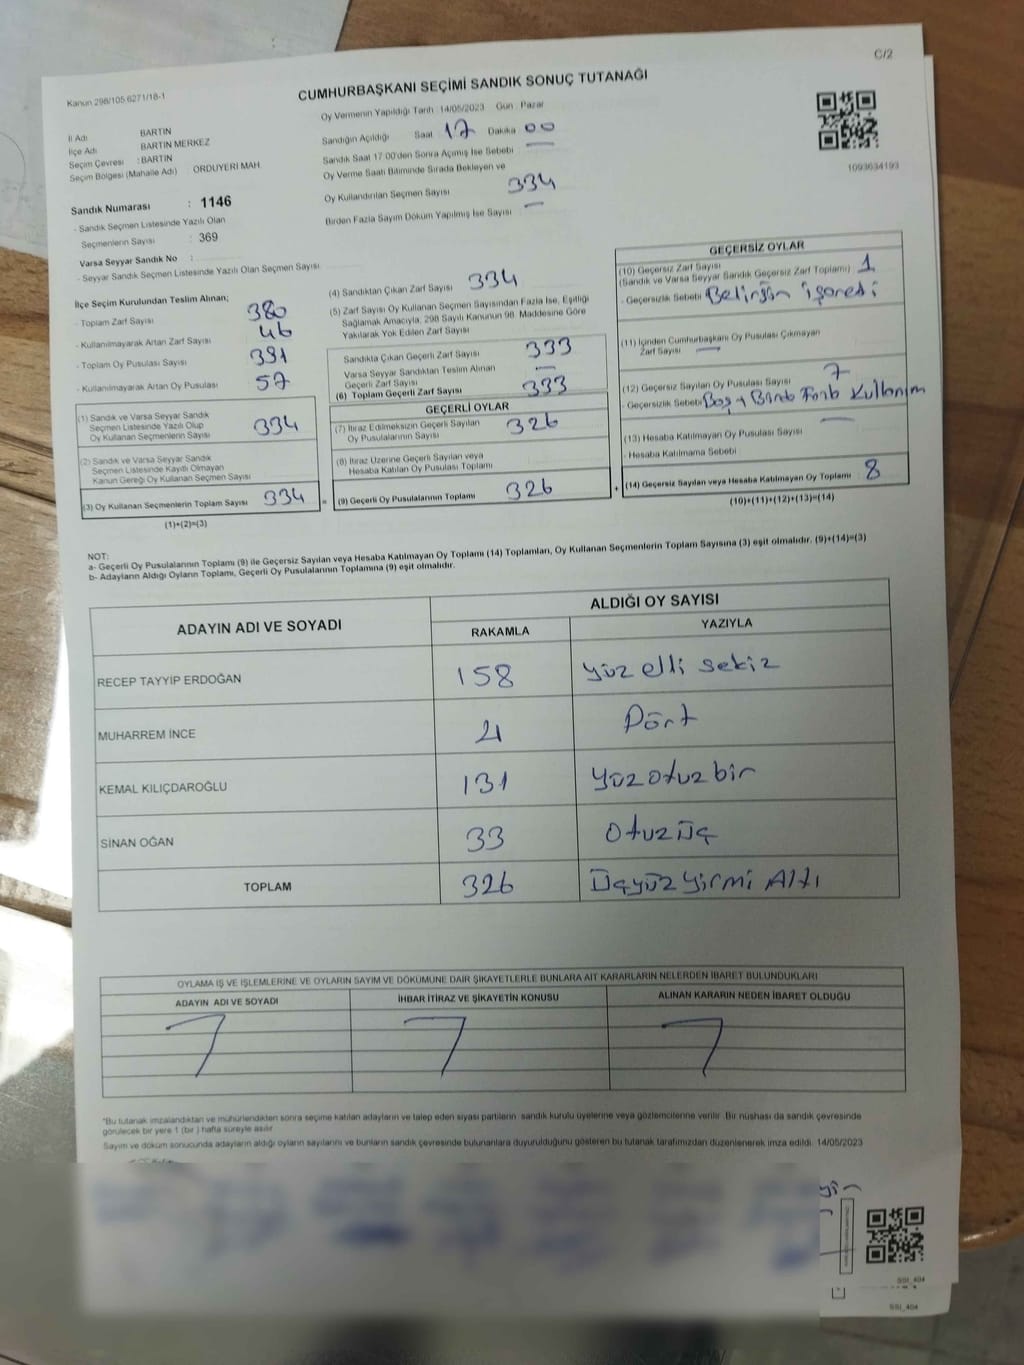 C/2
Kanun 298/105 6271/18-1
CUMHURBAŞKANI SEÇİMİ SANDIK SONUÇ TUTANAĞI
Oy Vermenin Yapıldığı Tarih :14/05/2023 Gün : Pazar
İl Adı BARTIN
İlçe Adı BARTIN MERKEZ
Seçim Çevresi : BARTIN
Seçim Bölgesi (Mahalle Adı) : ORDUYERİ MAH.
Sandığın Açıldığı Saat 17 Dakika 00
Sandık Saat 17:00'den Sonra Açımış İse Sebebi —
Oy Verme Saati Bitiminde Sırada Bekleyen ve
Oy Kullandırılan Seçmen Sayısı 334
Birden Fazla Sayım Döküm Yapılmış İse Sayısı —
1093634193
Sandık Numarası : 1146
- Sandık Seçmen Listesinde Yazılı Olan
Seçmenlerin Sayısı : 369
Varsa Seyyar Sandık No :
- Seyyar Sandık Seçmen Listesinde Yazılı Olan Seçmen Sayısı
İlçe Seçim Kurulundan Teslim Alınan;
- Toplam Zarf Sayısı 380
- Kullanılmayarak Artan Zarf Sayısı 46
- Toplam Oy Pusulası Sayısı 391
- Kullanılmayarak Artan Oy Pusulası 57
(1) Sandık ve Varsa Seyyar Sandık
Seçmen Listesinde Yazılı Olup
Oy Kullanan Seçmenlerin Sayısı 334
(2) Sandık ve Varsa Seyyar Sandık
Seçmen Listesinde Kayıtlı Olmayan
Kanun Gereği Oy Kullanan Seçmen Sayısı
(3) Oy Kullanan Seçmenlerin Toplam Sayısı 334
(1)+(2)=(3)
(4) Sandıktan Çıkan Zarf Sayısı 334
(5) Zarf Sayısı Oy Kullanan Seçmen Sayısından Fazla İse, Eşitliği
Sağlamak Amacıyla; 298 Sayılı Kanunun 98. Maddesine Göre
Yakılarak Yok Edilen Zarf Sayısı
Sandıkta Çıkan Geçerli Zarf Sayısı 333
Varsa Seyyar Sandıktan Teslim Alınan
Geçerli Zarf Sayısı —
(6) Toplam Geçerli Zarf Sayısı 333
GEÇERLİ OYLAR
(7) İtiraz Edilmeksizin Geçerli Sayılan
Oy Pusulalarının Sayısı 326
(8) İtiraz Üzerine Geçerli Sayılan veya
Hesaba Katılan Oy Pusulası Toplamı
= (9) Geçerli Oy Pusulalarının Toplamı 326
GEÇERSİZ OYLAR
(10) Geçersiz Zarf Sayısı
(Sandık ve Varsa Seyyar Sandık Geçersiz Zarf Toplamı) 1
- Geçersizlik Sebebi işareti
(11) İçinden Cumhurbaşkanı Oy Pusulası Çıkmayan
Zarf Sayısı —
(12) Geçersiz Sayılan Oy Pusulası Sayısı 7
- Geçersizlik Sebebi Boş + Kullanım
(13) Hesaba Katılmayan Oy Pusulası Sayısı —
- Hesaba Katılmama Sebebi
+ (14) Geçersiz Sayılan veya Hesaba Katılmayan Oy Toplamı 8
(10)+(11)+(12)+(13)=(14)
NOT:
a- Geçerli Oy Pusulalarının Toplamı (9) ile Geçersiz Sayılan veya Hesaba Katılmayan Oy Toplamı (14) Toplamları, Oy Kullanan Seçmenlerin Toplam Sayısına (3) eşit olmalıdır. (9)+(14)=(3)
b- Adayların Aldığı Oyların Toplamı, Geçerli Oy Pusulalarının Toplamına (9) eşit olmalıdır.
ADAYIN ADI VE SOYADI ALDIĞI OY SAYISI
RAKAMLA YAZIYLA
RECEP TAYYİP ERDOĞAN 158 yüz elli sekiz
MUHARREM İNCE 4 Dört
KEMAL KILIÇDAROĞLU 131 yüzotuzbir
SİNAN OĞAN 33 Otuzüç
TOPLAM 326 Üçyüzyirmi Altı
OYLAMA İŞ VE İŞLEMLERİNE VE OYLARIN SAYIM VE DÖKÜMÜNE DAİR ŞİKAYETLERLE BUNLARA AİT KARARLARIN NELERDEN İBARET BULUNDUKLARI
ADAYIN ADI VE SOYADI İHBAR İTİRAZ VE ŞİKAYETİN KONUSU ALINAN KARARIN NEDEN İBARET OLDUĞU
*Bu tutanak imzalandıktan ve mühürlendikten sonra seçime katılan adayların ve talep eden siyasi partilerin sandık kurulu üyelerine veya gözlemcilerine verilir. Bir nüshası da sandık çevresinde
görülecek bir yere 1 (bir) hafta süreyle asılır.
Sayım ve döküm sonucunda adayların aldığı oyların sayılarını ve bunların sandık çevresinde bulunanlara duyurulduğunu gösteren bu tutanak tarafımızdan düzenlenerek imza edildi. 14/05/2023
SSI_404
SSI_404